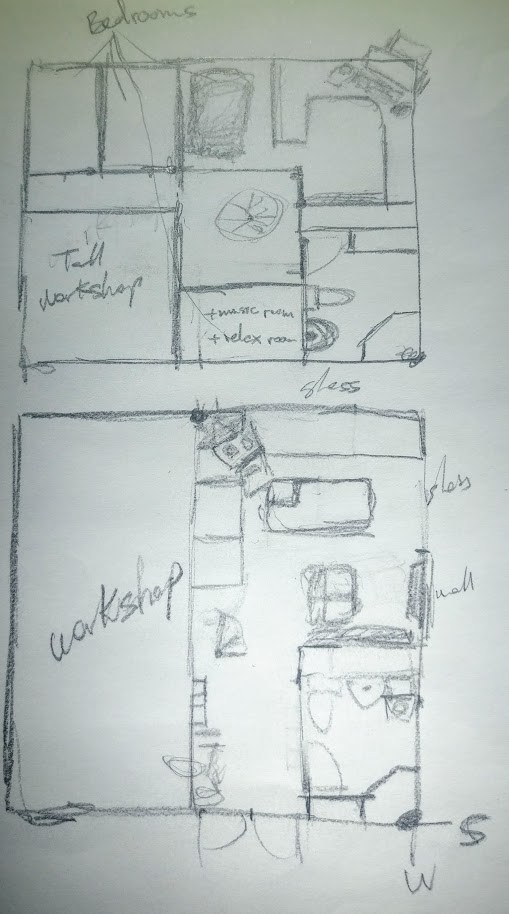 Bedrooms
Tall
workshop
+ music room
+ relax room
glass
glass
wall
workshop
S
W